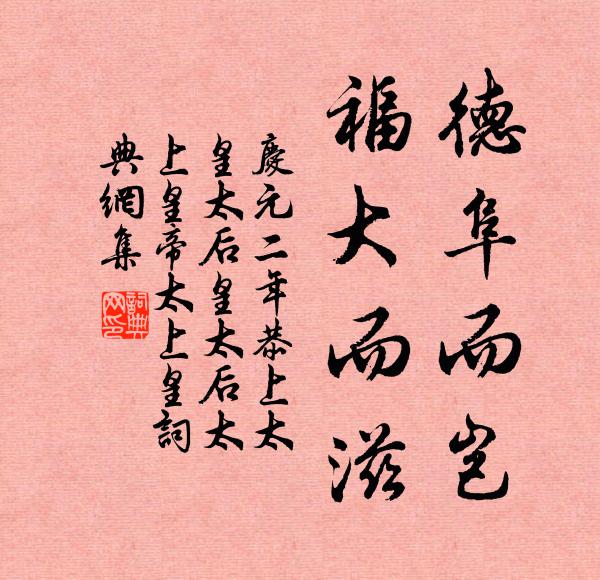 德阜而豈
福大而滋
慶元二年恭上太
皇太后皇太后太
上皇帝太上皇詞
典網集
詞典
网印